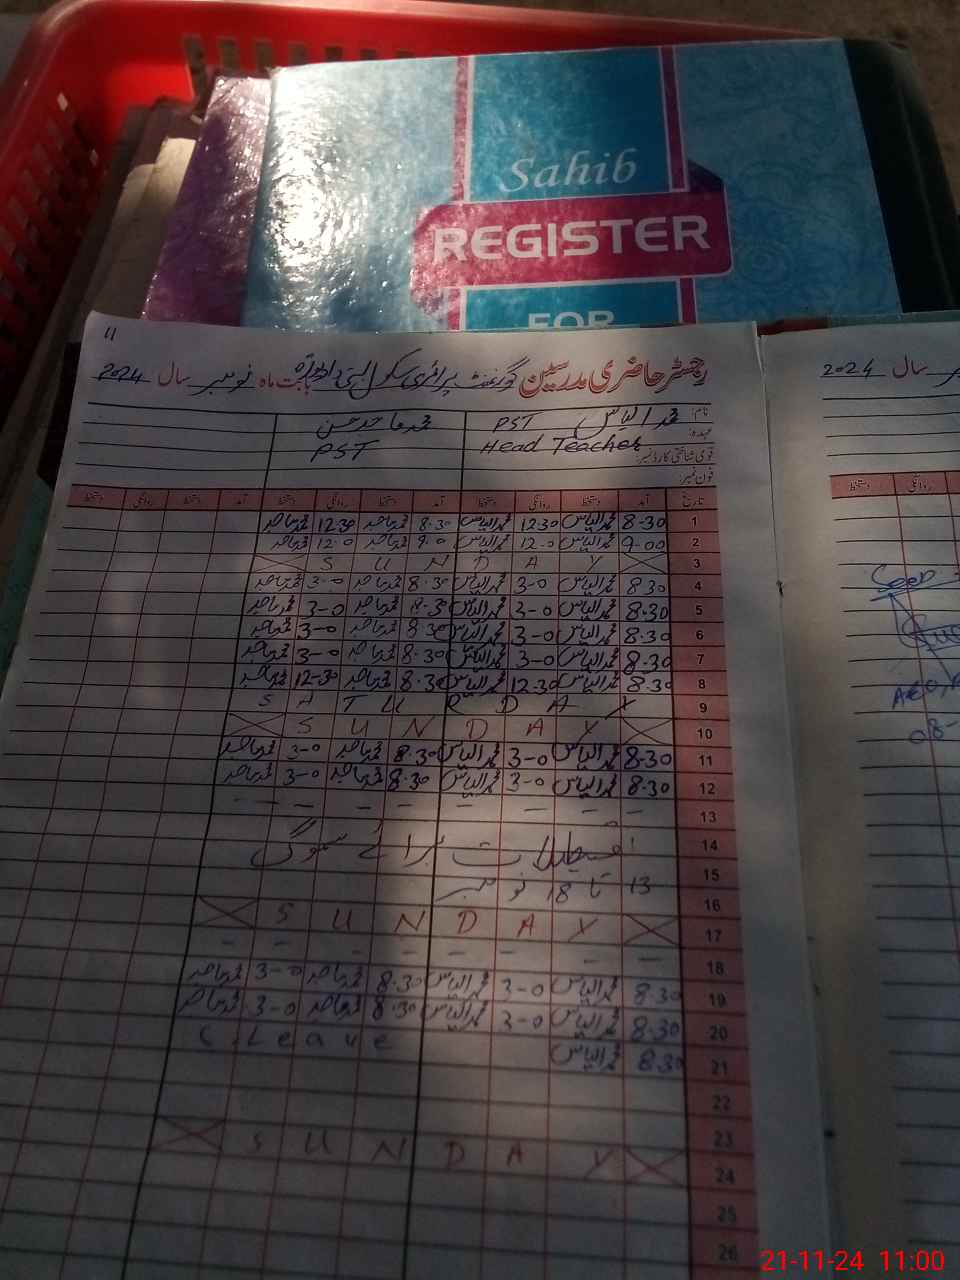 Sahib
REGISTER
FOR
11
رجسٹر حاضری مدرسین گورنمنٹ پرائمری سکول بابت ماہ نومبر سال 2024
سال 2024
نام: محمد الیاس PST
عہدہ: Head Teacher PST
قومی شناختی کارڈ نمبر:
فون نمبر:
تاریخ آمد دستخط روانگی دستخط آمد دستخط روانگی دستخط آمد دستخط روانگی دستخط
روانگی دستخط
1 8-30 محمد الیاس 12-30 محمد الیاس 8-30 12-30
2 9-00 محمد الیاس 12-0 محمد الیاس 9-0 12-0
3 S U N D A Y
4 8-30 محمد الیاس 3-0 محمد الیاس 8-30 3-0
5 8-30 محمد الیاس 3-0 محمد الیاس 8-30 3-0
6 8-30 محمد الیاس 3-0 محمد الیاس 8-30 3-0
7 8-30 محمد الیاس 3-0 محمد الیاس 8-30 3-0
8 8-30 محمد الیاس 12-30 محمد الیاس 8-30 12-30
9 S A T U R D A Y
10 S U N D A Y
11 8-30 محمد الیاس 3-0 محمد الیاس 8-30 3-0
12 8-30 محمد الیاس 3-0 محمد الیاس 8-30 3-0
13 — — — — — — — —
14 تعطیلات برائے سموگ
15 13 تا 18 نومبر
16
17 S U N D A Y
18 — — — — — — —
19 8-30 محمد الیاس 3-0 محمد الیاس 8-30 3-0
20 8-30 محمد الیاس 3-0 محمد الیاس 8-30 3-0
21 8-30 محمد الیاس C. Leave
22
23
24 S U N D A Y
25
26
Seen
08-
21-11-24 11:00